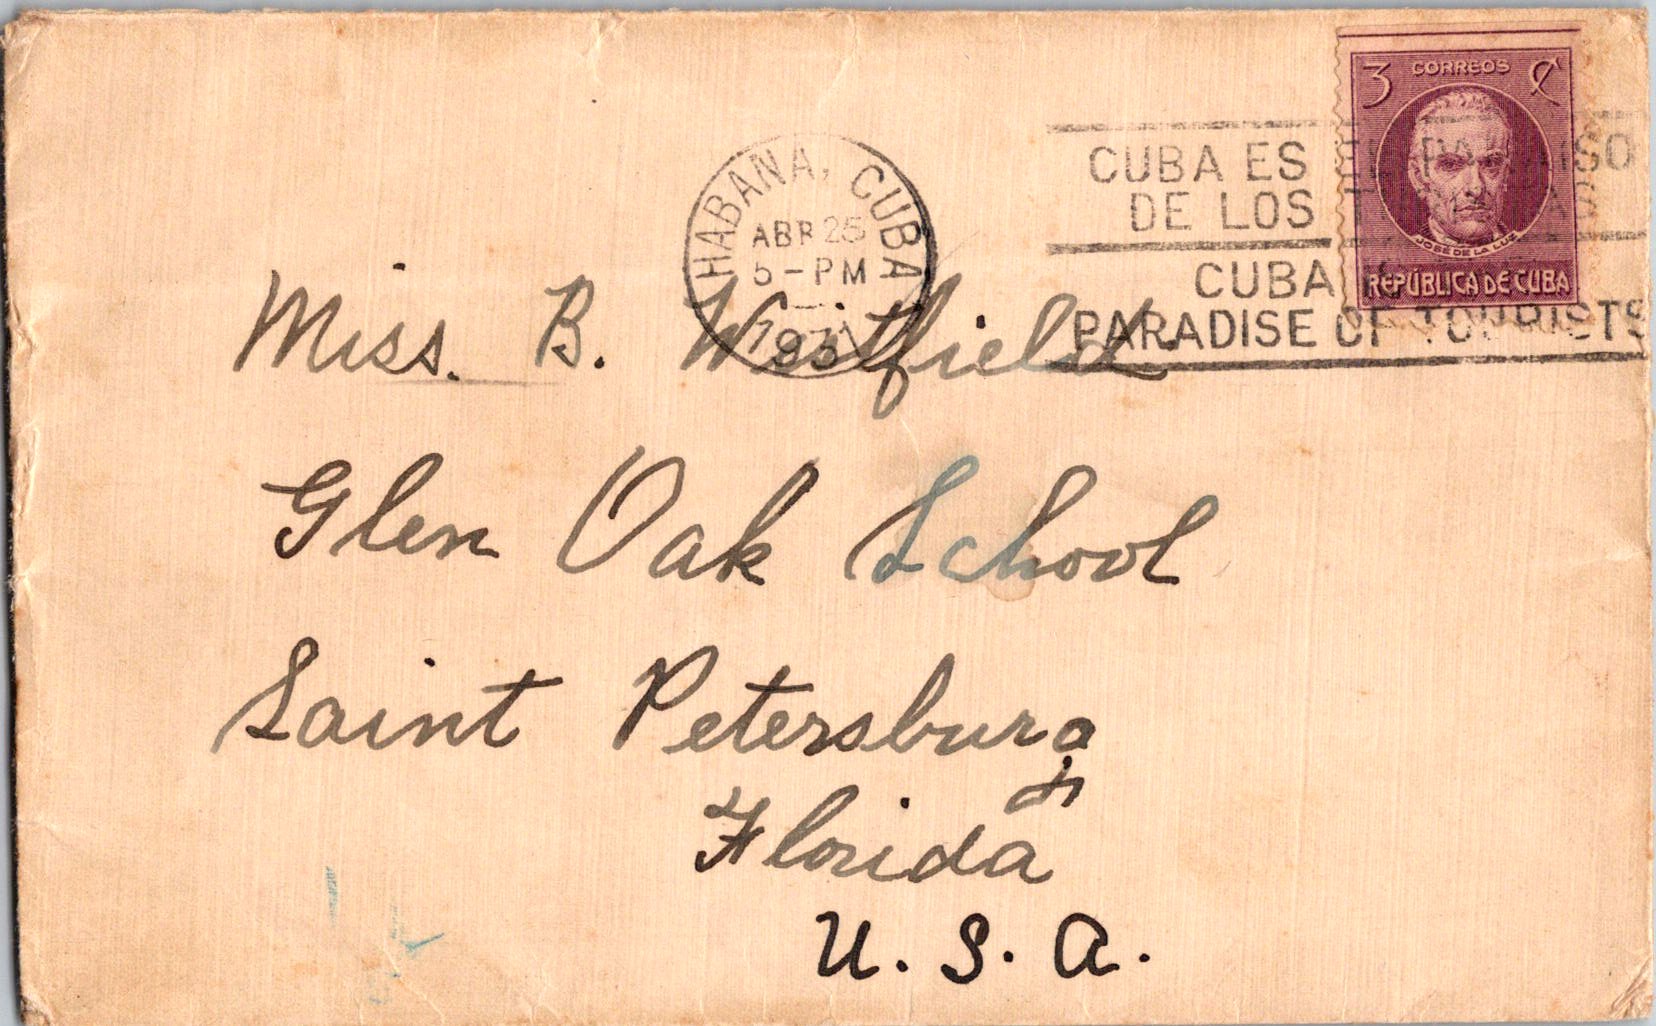 3 CORREOS ₡
JOSÉ DE LA LUZ
REPÚBLICA DE CUBA
HABANA, CUBA
ABR 25
5-PM
CUBA ES EL PARAISO
DE LOS
CUBA
PARADISE OF TOURISTS
Miss. B. Westfield
Glen Oak School
Saint Petersburg
Florida
U. S. A.